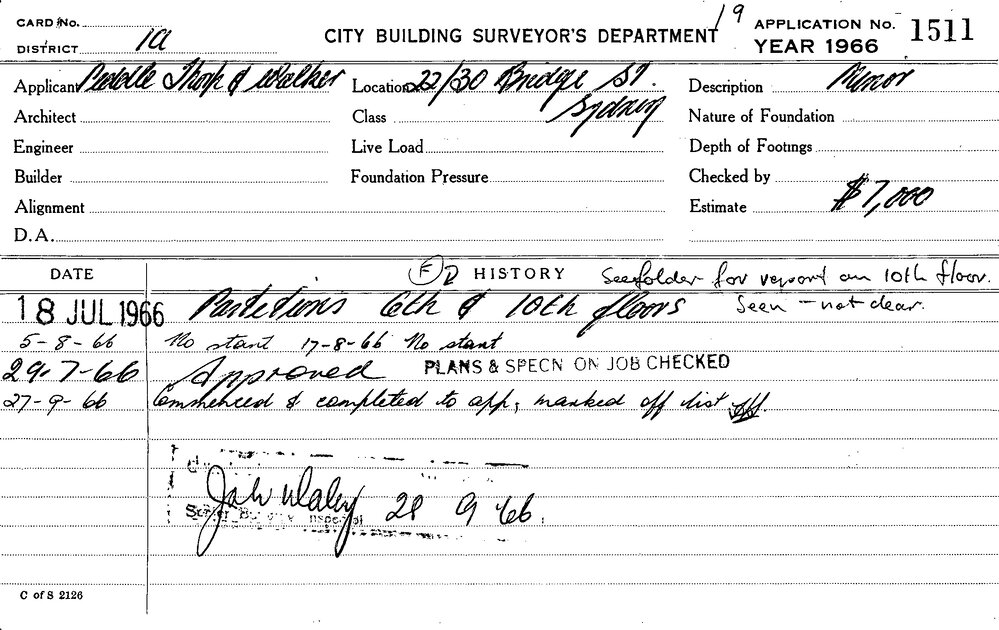 CARD No.
DISTRICT 1a
CITY BUILDING SURVEYOR'S DEPARTMENT
19
APPLICATION No. 1511
YEAR 1966
Applicant Peddle Thorp & Walker
Location 22/30 Bridge St.
Sydney
Description Minor
Architect
Class
Nature of Foundation
Engineer
Live Load
Depth of Footings
Builder
Foundation Pressure
Checked by
Alignment
Estimate $7,000
D.A.
DATE
F HISTORY See folder for report on 10th floor.
Seen - not clear.
18 JUL 1966 Partitions 6th & 10th floors
5-8-66 No start 17-8-66 No start
29.7-66 Approved PLANS & SPECN ON JOB CHECKED
27-9-66 Commenced & completed to app, marked off list
28 9 66
C of S 2126